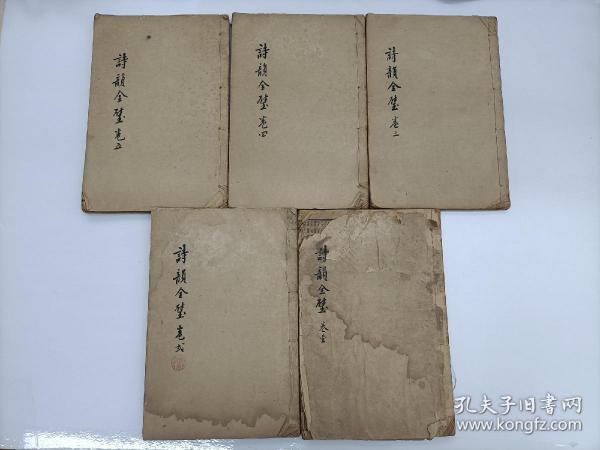 詩韻全璧 卷五
詩韻全璧 卷四
詩韻全璧 卷三
詩韻全璧 卷弍
詩韻全璧 卷壹
孔夫子旧书网
www.kongfz.com